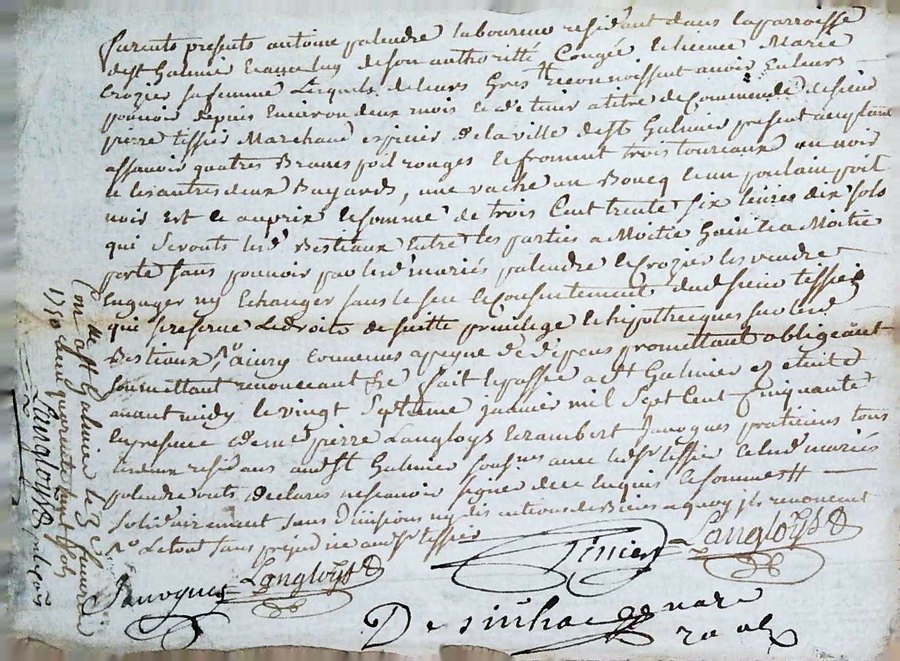 furents presents antoine palendre laboureur residant dans la parroisse
de st Galmier de son authoritté Congée et licence Marie
Crozier sa femme Lesquels de leurs Gres reconnoissent avoir
pouvoir depuis Environ deux mois et de tenir a titre de Commende de sieur
pierre tissier Marchand espicier de la ville de st Galmier present acceptant
assavoir quatres Braues poil rouges et froment trois toureaux un noir
et les autres deux Bayards, une vache un Boucq et un poulain poil
noir Est le au prix et somme de trois Cent trente six livres dix sols
qui seronts lesd. Bestiaux Entre les parties a Moitié Gain et a Moitié
perte sans pouvoir par lesd. mariés palendre et Crozier les vendre
Engager ny Echanger sans le seu et Consentement dud. sieur tissier
qui se reserve Le droits de suitte privilege et hipothecques sur les d.
Bestiaux Convenus a peyne de depens promettant obligeant
soumettant renonceant &c fait et passé a st Galmier En etude
avant midy le vingt septieme janvier mil sept Cent Cinquante
En presence de me pierre Langloys et rambert Janoques praticiens tous
les deux residans aud. st Galmier soussnes avec led. sr tissier et lesd. mariés
palendre onts declarés ne scavoir signer de ce Enquis et sommés
solidairement sans Divisions ny discutions de Biens a quoy ils renoncent
Le tout sans prejudice aud. sr tissier
Tissier Langloys
Janoques Langloys
Desinha
Con. a st Galmier le 3e fevrier
1750 quarante huit sols
Langloys